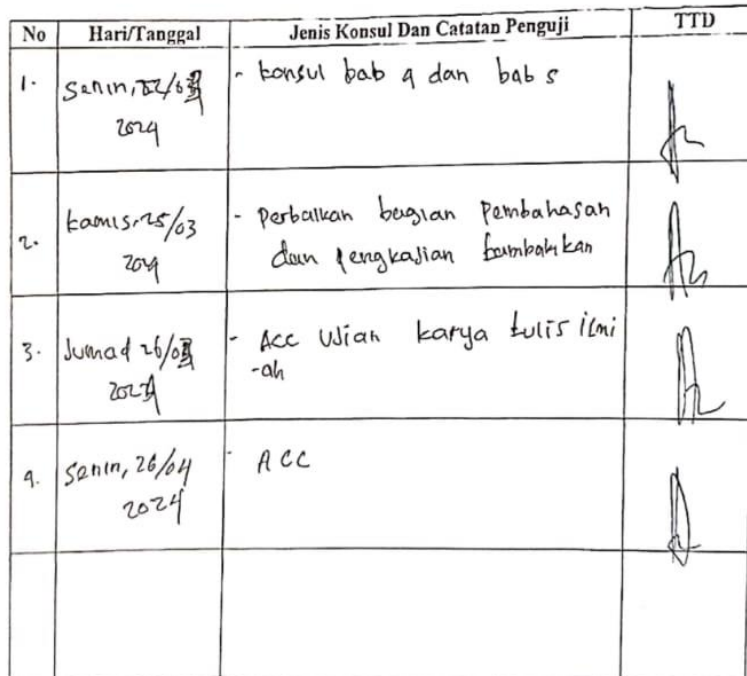 No Hari/Tanggal Jenis Konsul Dan Catatan Penguji TTD
1. Senin, 22/0 - konsul bab 4 dan bab 5
2024
2. kamis, 25/03 - Perbaikan bagian Pembahasan
2024 dan pengkajian tambahkan
3. Jumad 26/0 - Acc Ujian karya tulis ilmi
2024 -ah
4. Senin, 26/04 - ACC
2024